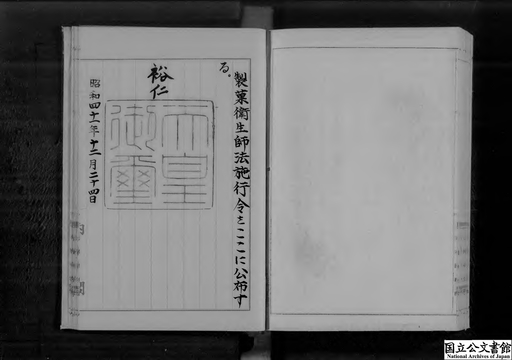 製菓衛生師法施行令をここに公布す
る。
裕仁
天皇
御璽
昭和四十一年十二月二十四日
国立公文書館
National Archives of Japan